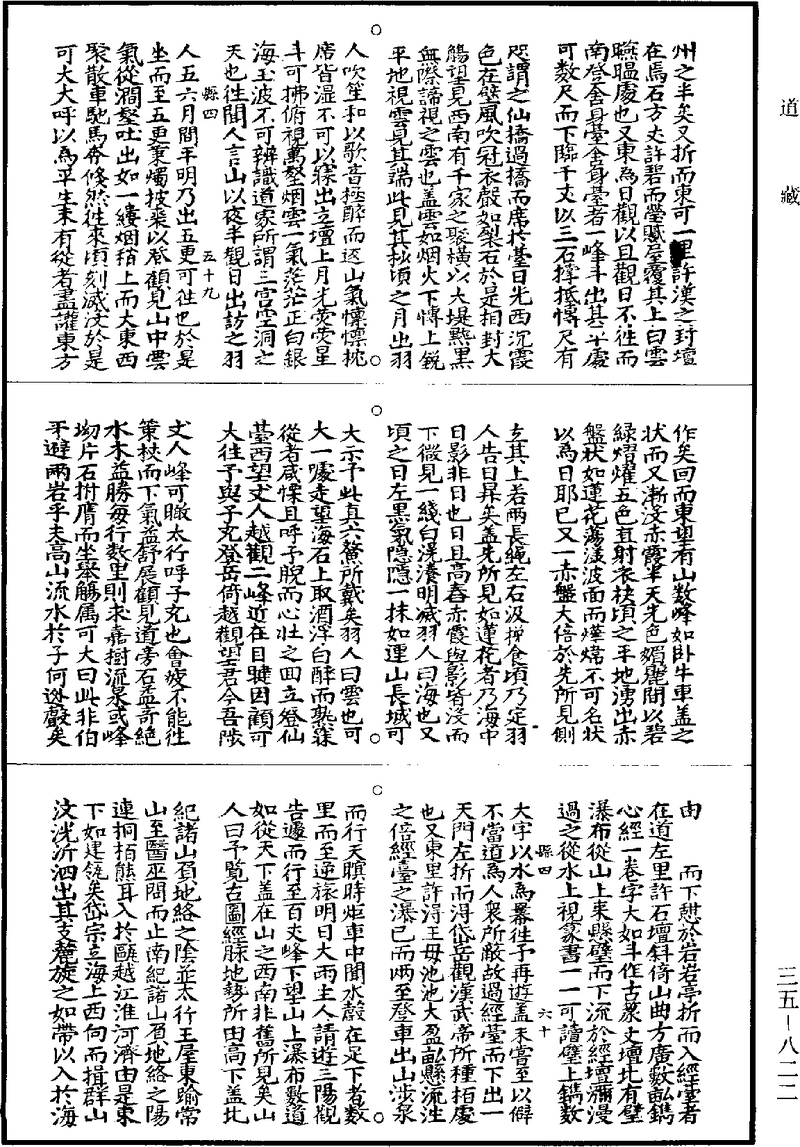 道藏
州之半矣又折而東可一里許漢之封壇
在焉石方丈許碧而瑩膩屋覆其上曰雲
曣㬈處也又東為日觀以且觀日不徃而
南登舍身臺舍身臺者一峰斗出甚平處
可数尺而下臨千丈以三石撑抵愽尺有
咫謂之仙橋過橋而席於臺日先西沉霞
色在壁風吹冠衣聲如裂石於是相封大
觴望見西南有千家之聚橫以大堤黯黒
無際諦視之雲也盖雲如烟火下愽上銳
平地視雲見其端此見其杪頃之月出羽
人吹笙和以歌音極醉而返山氣懍懍枕
席皆濕不可以寐出立壇上月光熒熒星
斗可拂俯視萬壑烟雲一氣茫茫正白銀
海玉波不可辨識道家所謂三宫空洞之
天也徃聞人言山以夜半觀日出訪之羽
縣四 五十九
人五六月間平明乃出五更可徃也於是
坐而至五更秉燭披裘以登顧見山中雲
氣從澗壑吐出如一縷烟稍上而大東西
聚散車馳馬奔倏然徃來頃刻滅没於是
可大大呼以為平生未有從者盡讙東方
作矣回而東望有山数峰如卧牛車盖之
狀而又漸没赤霞半天光色媚麗間以碧
緑熠燿五色直射衣袂頃之平地湧出赤
盤状如蓮花蕩漾波面而燁煒不可名状
以為日耶已又一赤盤大倍於先所見側
立其上若兩長繩左右汲挽食頃乃定羽
人告曰昇矣盖先所見如蓮花者乃海中
日影非日也日且高舂赤霞與影皆没而
下微見一綫白滉瀁明滅羽人曰海也又
頃之日左黒氣隐隱一抹如連山長城可
大示予此真六鰲所戴矣羽人曰雲也可
大一噱走望海石上取酒浮白醉而熟寐
從者咸慄且呼予脫而心壯之囬立登仙
臺西望丈人越觀二峰近在目睫因顧可
大徃予與子充登岳倚越觀望君今吾陟
丈人峰可瞰太行呼子充也會疲不能徃
策杖而下氣益舒展顧見道旁石益奇絶
水木益勝每行數里則求嘉樹流泉或峰
坳片石拊膺而坐舉觴属可大曰此非伯
牙避雨岩乎夫高山流水於子何遜聲矣
由　而下憇於岩岩亭折而入經臺者
在道左里許石壇斜倚山曲方廣數畝鐫
心經一卷字大如斗作古篆文壇北有壁
瀑布從山上来懸壁而下流於經壇瀰漫
過之從水上視篆書一一可讀壁上鐫數
縣四 六十
大字以水為幕徃予再遊盖未嘗至以僻
不當道為人衆所蔽故過經臺而下出一
天門左折而淂岱岳觀漢武帝所種柏處
也又東里許淂王母池池大盈畝懸流注
之倍經臺之瀑已而晒至登車出山涉泉
而行天暝時炬車中聞水聲在足下者数
里而至逆旅明日大雨主人請遊三陽觀
告遽而行至百丈峰下望山上瀑布數道
如從天下盖在山之西南非舊所見矣山
人曰予覽古圖經脉地勢所由高下盖北
紀諸山負地絡之陰並太行王屋東踰常
山至醫巫閭而止南紀諸山負地絡之陽
連桐栢熊耳入於甌越江淮河濟由是東
下如建瓴矣岱宗立海上西向而揖群山
汶洸沂泗出其支麓旋之如帶以入於海
三五－八二二